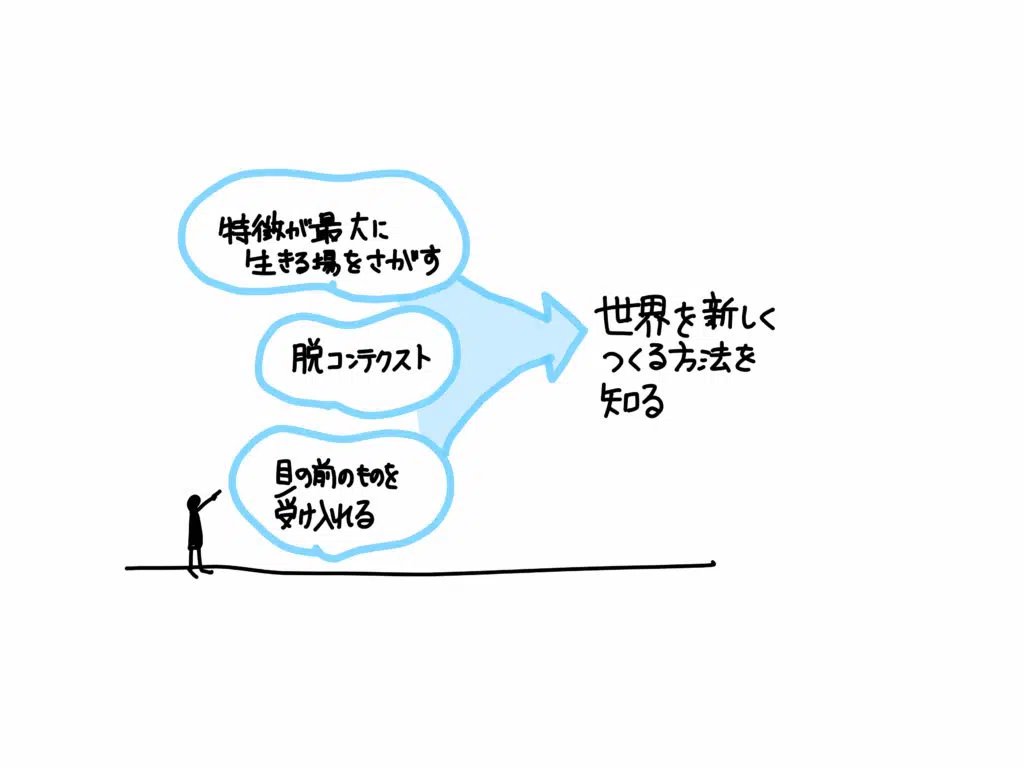 特徴が最大に
生きる場をさがす
脱コンテクスト
目の前のものを
受け入れる
世界を新しく
つくる方法を
知る